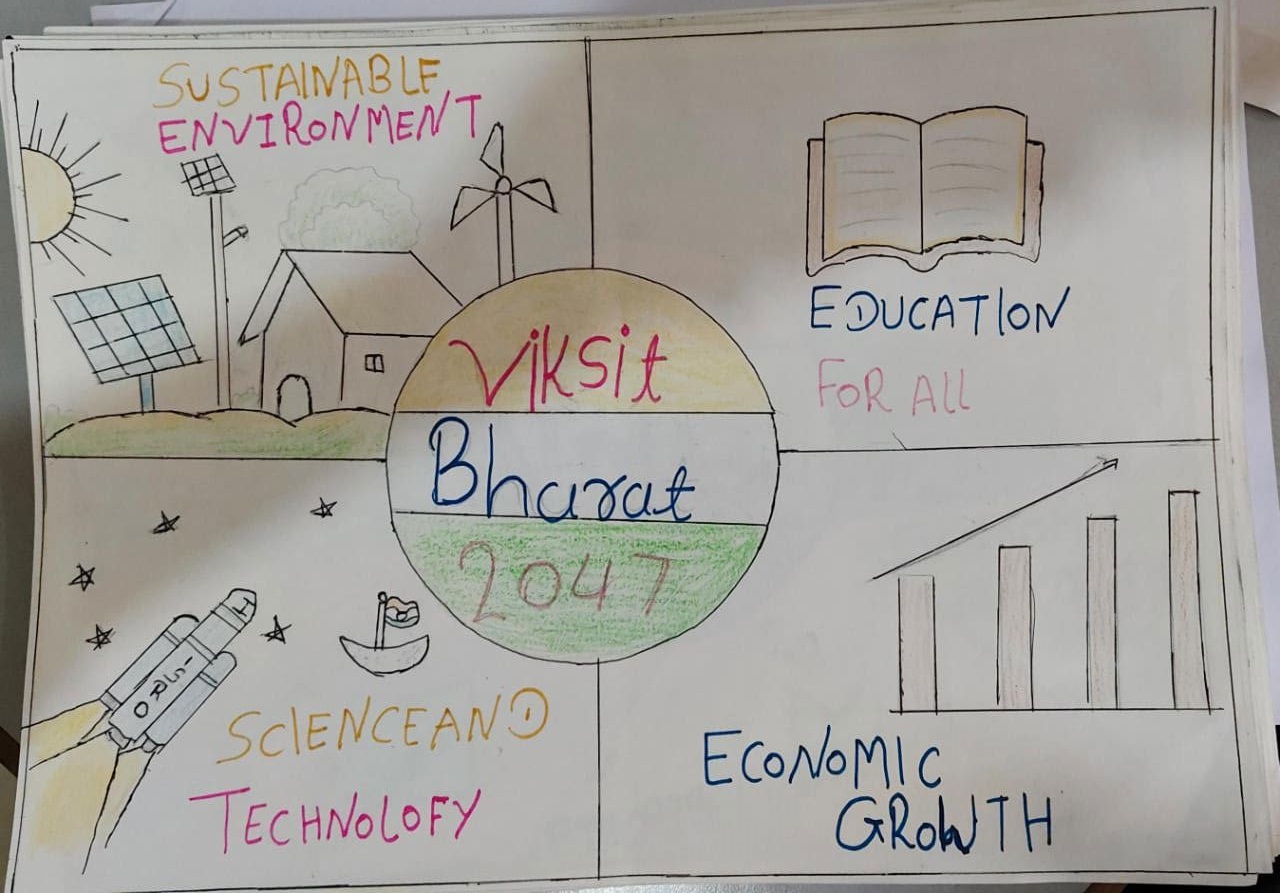 SUSTAINABLE
ENVIRONMENT
EDUCATION
FOR ALL
Viksit
Bharat
2047
ISRO
SCIENCE AND
TECHNOLOFY
ECONOMIC
GROWTH